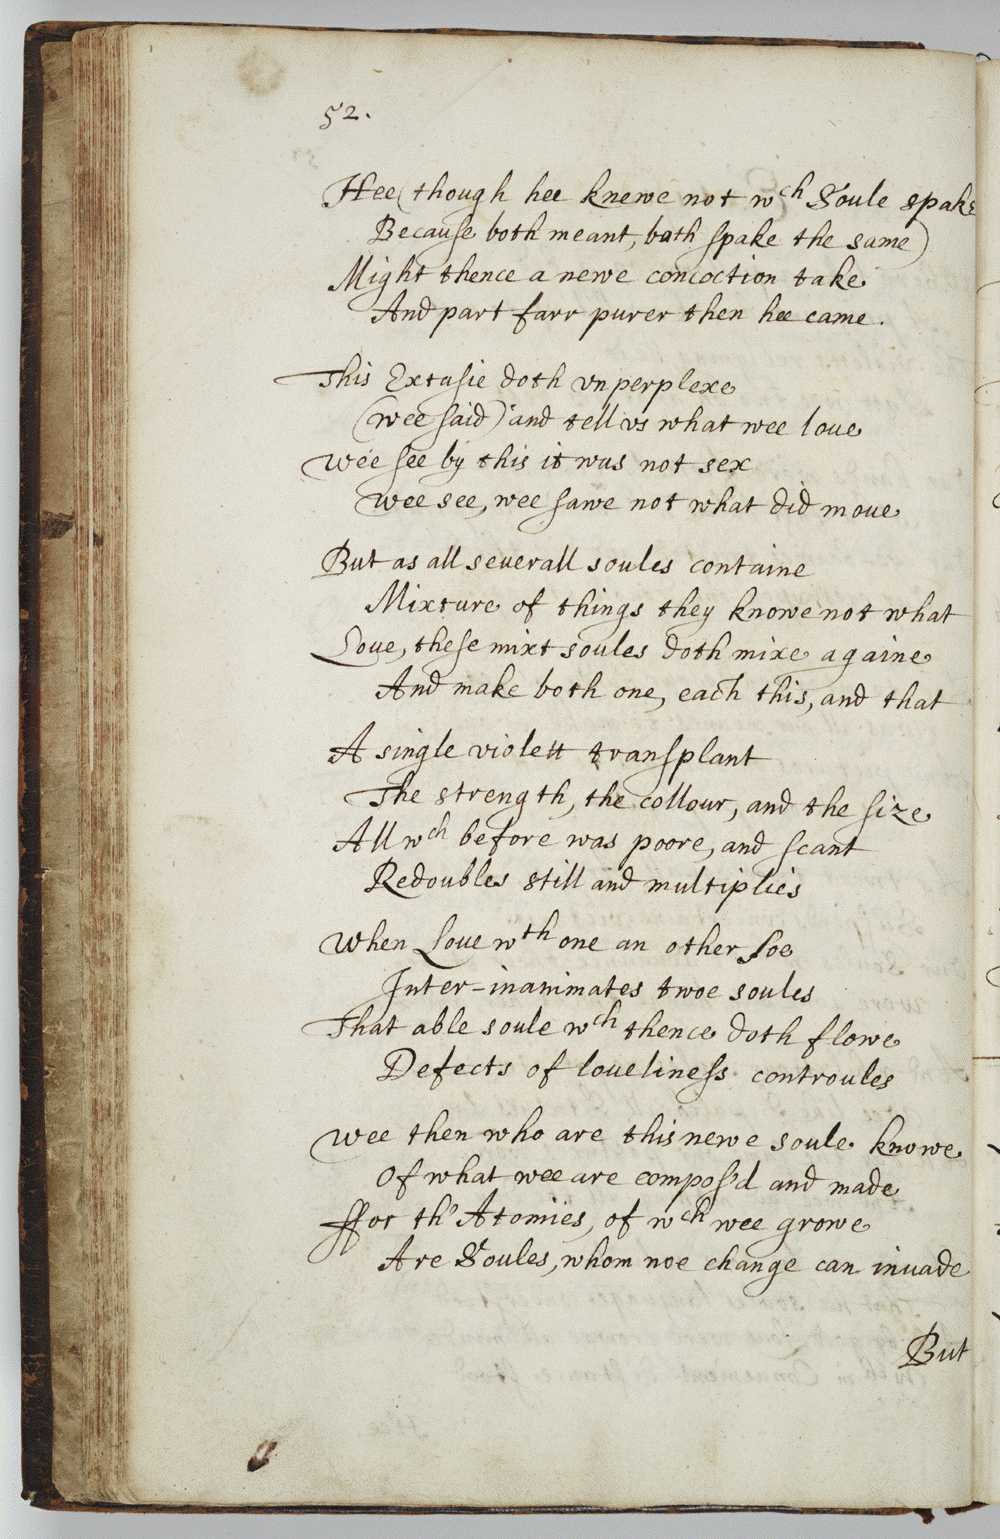 52.
Hee (though hee knewe not wch Soule spake
Because both meant, both spake the same)
Might thence a newe concoction take
And part farr purer then hee came.
This Extasie doth vnperplexe
(wee said) and tell vs what wee loue
Wee see by this it was not sex
Wee see, wee sawe not what did moue
But as all seuerall soules containe
Mixture of things they knowe not what
Loue, these mixt soules doth mixe againe
And make both one, each this, and that
A single violett transplant
The strength, the collour, and the size
All wch before was poore, and scant
Redoubles still and multiplies
When Loue wth one an other soe
Inter-inanimates twoe soules
That able soule wch thence doth flowe
Defects of loueliness controules
Wee then who are this newe soule knowe
Of what wee are compos'd and made
ffor th' Atomies, of wch wee growe
Are Soules, whom noe change can inuade
But